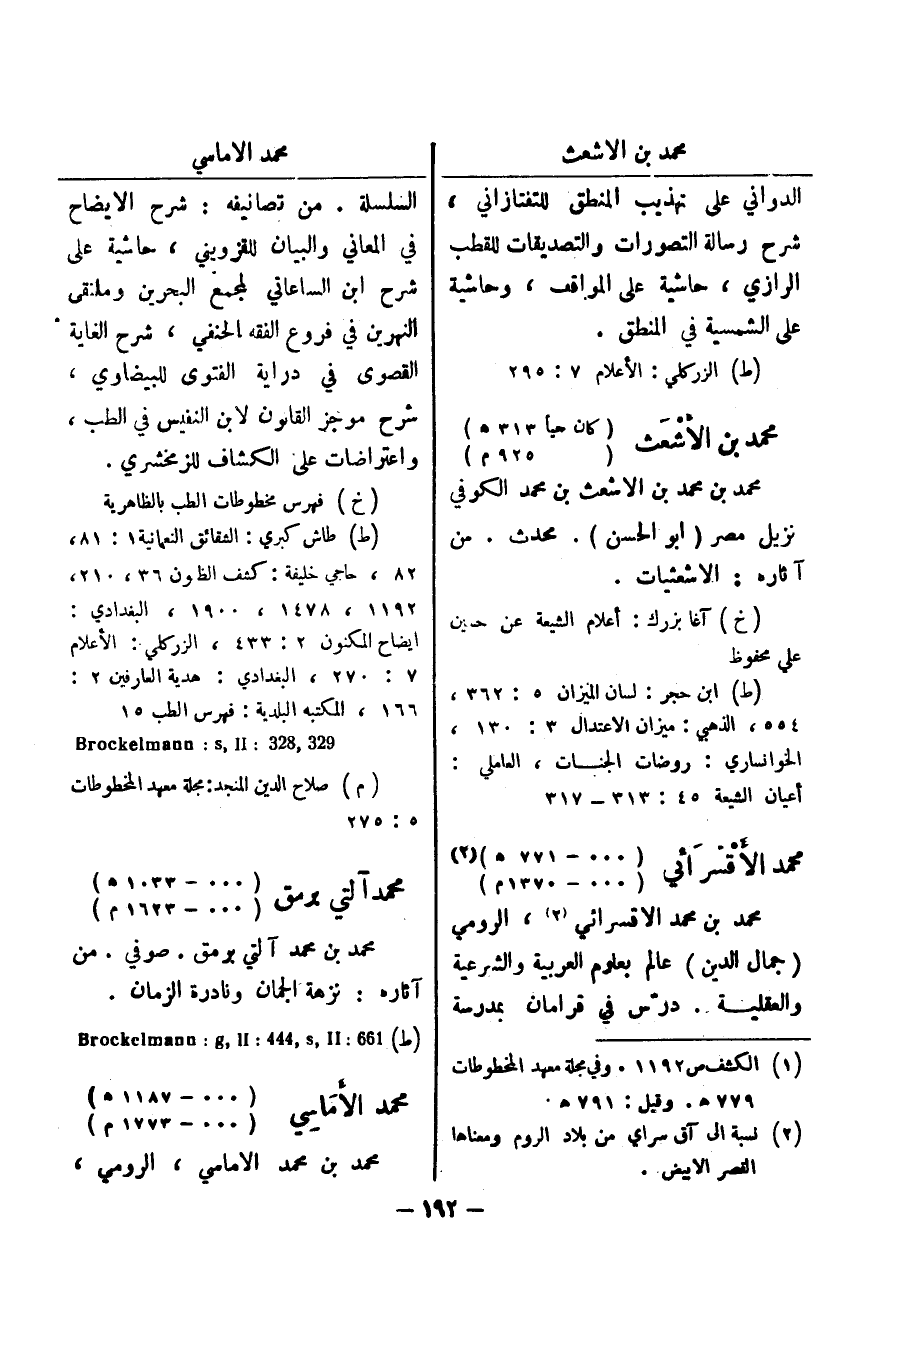 محمد بن الاشعث
الدواني على تهذيب المنطق للتفتازاني ،
شرح رسالة التصورات والتصديقات للقطب
الرازي ، حاشية على المواقف ، وحاشية
على الشمسية في المنطق .
(ط) الزركلي : الأعلام ٧ : ٢٩٥
محمد بن الأَشْعَث ( كان حياً ٣١٣ ه )
( ٩٢٥ م )
محمد بن محمد بن الاشعث بن محمد الكوفي
نزيل مصر ( ابو الحسن ) . محدث . من
آثاره : الاشعثيات .
(خ) آغا بزرك : أعلام الشيعة عن حسين
علي محفوظ
(ط) ابن حجر : لسان الميزان ٥ : ٣٦٢ ،
٥٥٤ ، الذهبي : ميزان الاعتدال ٣ : ١٣٠ ،
الخوانساري : روضات الجنـــات ، العاملي :
أعيان الشيعة ٤٥ : ٣١٣ – ٣١٧
محمد الأَقْسَرَائي ( ٠٠٠ – ٧٧١ ه )(٢)
( ٠٠٠ – ١٣٧٠م )
محمد بن محمد الاقسرائي (٢) ، الرومي
( جمال الدين ) عالم بعلوم العربية والشرعية
والعقليـــة . درّس في قرامان بمدرسة
(١) الكشف ص ١١٩٢ . وفي مجلة معهد المخطوطات
٧٧٩ ه . وقيل : ٧٩١ ه .
(٢) نسبة الى آق سراي من بلاد الروم ومعناها
القصر الابيض .
محمد الاماسي
السلسلة . من تصانيفه : شرح الايضاح
في المعاني والبيان للقزويني ، حاشية على
شرح ابن الساعاتي لمجمع البحرين وملتقى
النهرين في فروع الفقه الحنفي ، شرح الغاية
القصوى في دراية الفتوى للبيضاوي ،
شرح موجز القانون لابن النفيس في الطب ،
واعتراضات على الكشاف للزمخشري .
(خ) فهرس مخطوطات الطب بالظاهرية
(ط) طاش كبري : الشقائق النعمانية١ : ٨١،
٨٢ ، حاجي خليفة : كشف الظنون ٣٦ ، ٢١٠،
١١٩٢ ، ١٤٧٨ ، ١٩٠٠ ، البغدادي :
ايضاح المكنون ٢ : ٤٣٣ ، الزركلي : الأعلام
٧ : ٢٧٠ ، البغدادي : هدية العارفين ٢ :
١٦٦ ، المكتبه البلدية : فهرس الطب ١٥
Brockelmann : s, II : 328, 329
(م) صلاح الدين المنجد: مجلة معهد المخطوطات
٥ : ٢٧٥
محمد آلتي برمق ( ٠٠٠ – ١٠٣٣ ه )
( ٠٠٠ – ١٦٢٣ م )
محمد بن محمد آلتي برمق . صوفي . من
آثاره : نزهة الجمان ونادرة الزمان .
(ط) Brockelmann : g, II : 444, s, II : 661
محمد الأَمَاسِي ( ٠٠٠ – ١١٨٧ ه )
( ٠٠٠ – ١٧٧٣ م )
محمد بن محمد الامامي ، الرومي ،
– ١٩٢ –